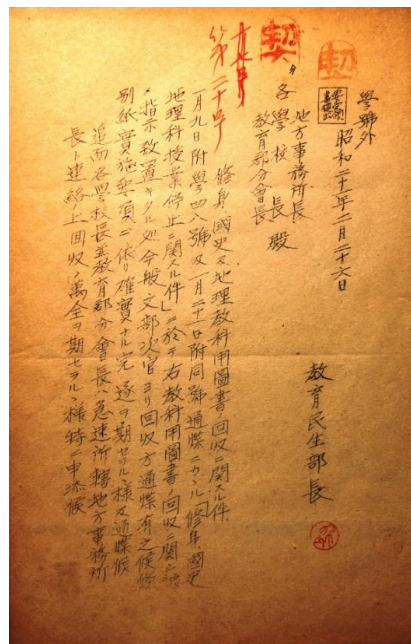 學號外
昭和二十一年二月二十六日
教育民生部長
地方事務所長
各學校長殿
教育部分會長
契
契
第二十号
修身國史及地理教科用圖書ノ回收ニ関スル件
一月九日附學四八號及一月二十一日附同號通牒ニカヽル「修身、國史
地理科授業停止ニ関スル件」ニ於テ右教科用圖書ノ回收ニ関シ
指示致置キタル処今般文部次官ヨリ回收方通牒有之候條
別紙實施要項ニ依リ確實ナル完遂ヲ期セラルヽ様及通牒候
追而各學校長並教育部分會長ハ急速所轄地方事務所
長ト連絡ノ上回收ノ萬全ヲ期セラルヽ様特ニ申添候